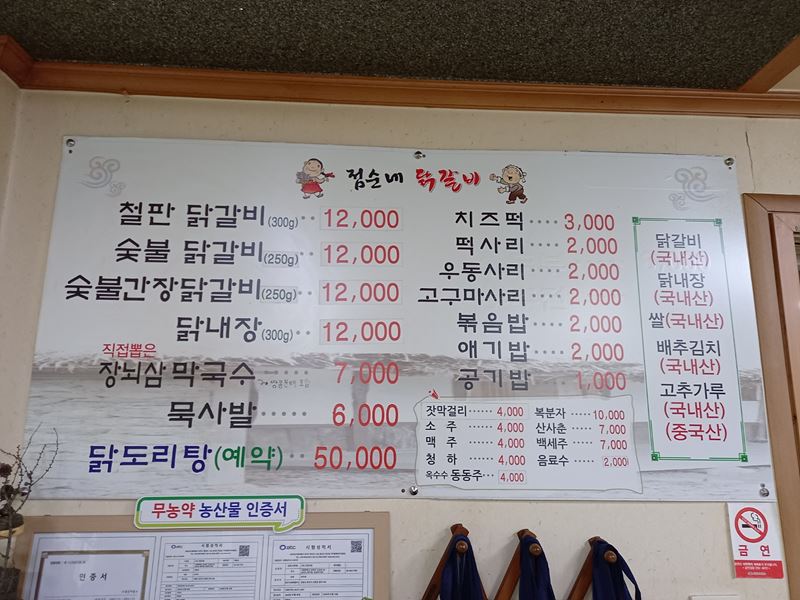 점순네 닭갈비
철판 닭갈비(300g)·· 12,000
숯불 닭갈비(250g)·· 12,000
숯불간장닭갈비(250g)·· 12,000
닭내장(300g)·· 12,000
직접뽑은
장뇌삼 막국수 ·· 7,000
묵사발 ····· 6,000
닭도리탕(예약)·· 50,000
치즈떡···· 3,000
떡사리···· 2,000
우동사리···· 2,000
고구마사리···· 2,000
볶음밥···· 2,000
애기밥···· 2,000
공기밥···· 1,000
잣막걸리 ······ 4,000
소 주 ······ 4,000
맥 주 ······ 4,000
청 하 ······ 4,000
옥수수 동동주··· 4,000
복분자 ···· 10,000
산사춘 ···· 7,000
백세주 ···· 7,000
음료수 ···· 2,000
닭갈비
(국내산)
닭내장
(국내산)
쌀(국내산)
배추김치
(국내산)
고추가루
(국내산)
(중국산)
무농약 농산물 인증서
인 증 서
시험성적서
시험성적서
금 연